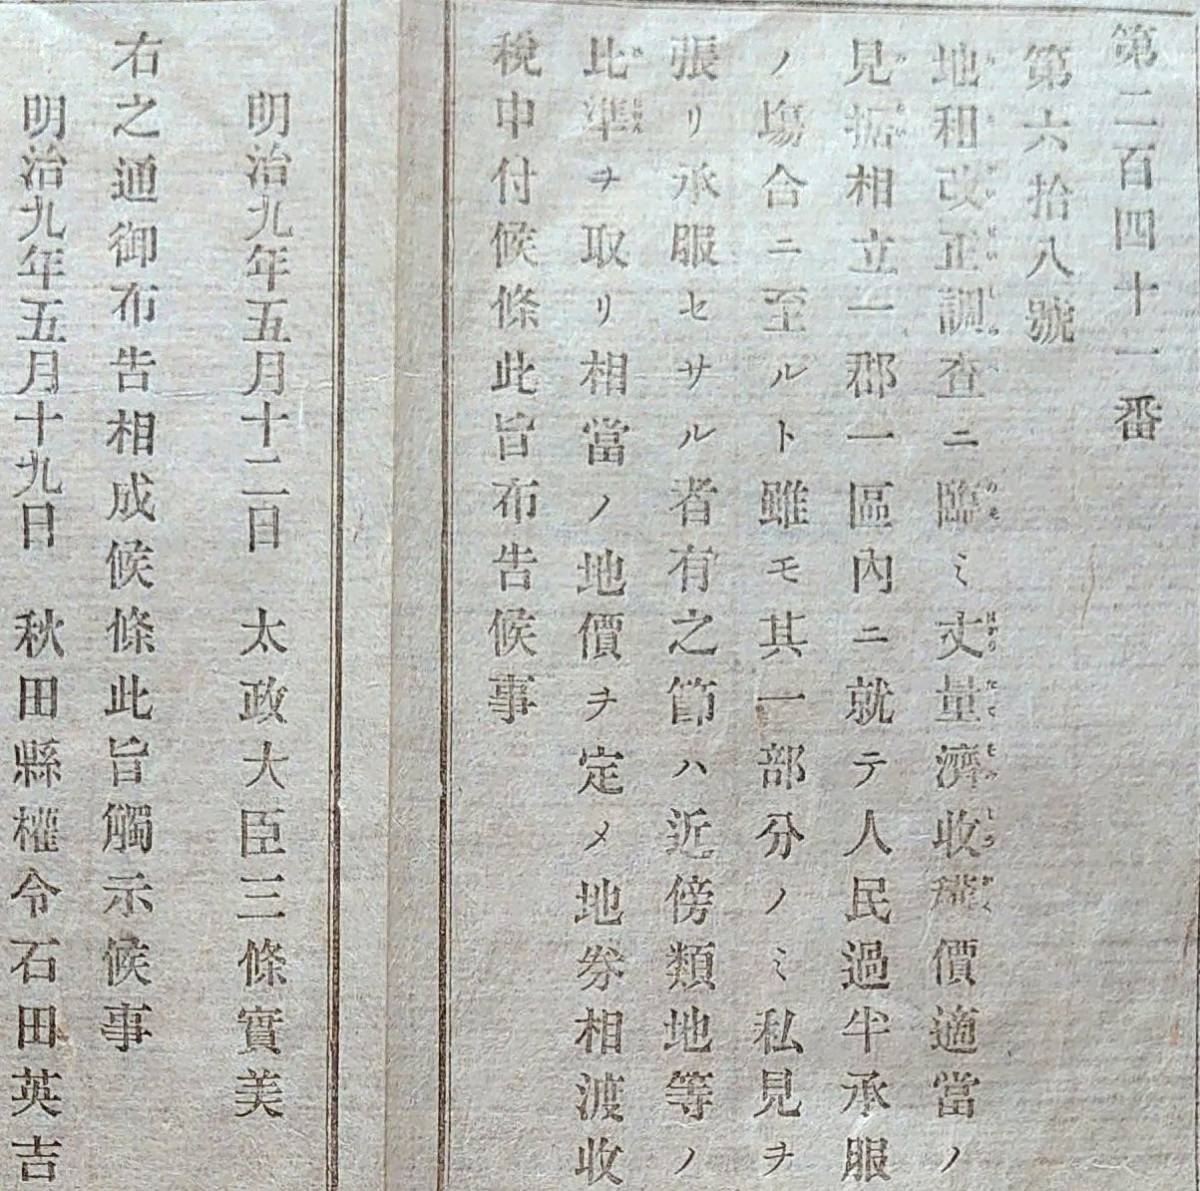 第二百四十一番
第六拾八號
地租改正調査ニ臨ミ丈量濟收穫價適當ノ
見据相立一郡一區內ニ就テ人民過半承服
ノ塲合ニ至ルト雖モ其一部分ノミ私見ヲ
張リ承服セサル者有之節ハ近傍類地等ノ
比準ヲ取リ相當ノ地價ヲ定メ地券相渡收
稅申付候條此旨布告候事
明治九年五月十二日 太政大臣三條實美
右之通御布告相成候條此旨觸示候事
明治九年五月十九日 秋田縣權令石田英吉